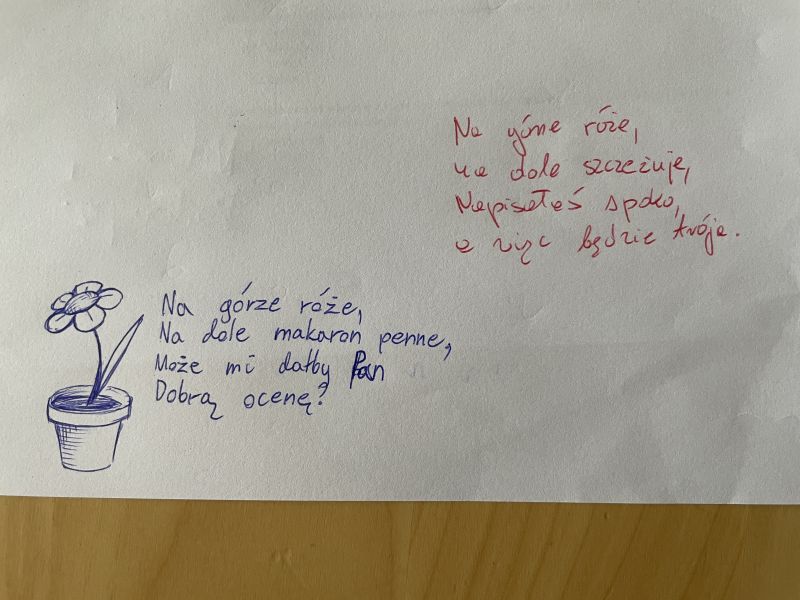 Na górze róże,
na dole szczeżuje,
Napisałeś spoko,
a więc będzie trója.
Na górze róże,
Na dole makaron penne,
Może mi dałby Pan
Dobrą ocenę?